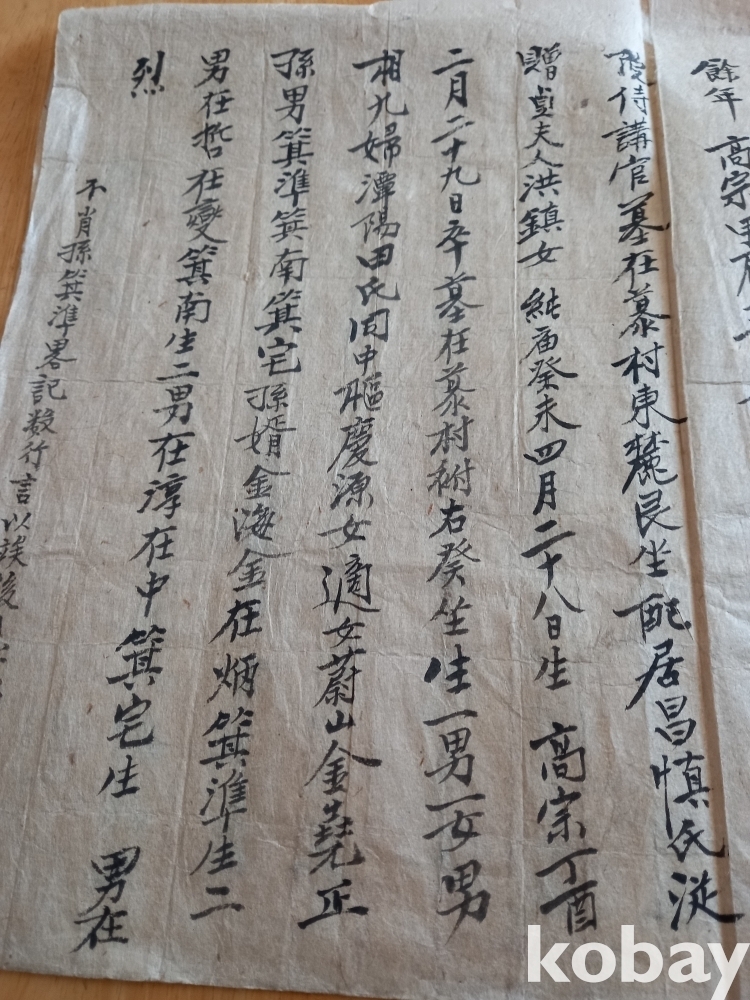 餘年 高宗
侍講官墓在募村東麓艮坐 配居昌慎氏從
贈貞夫人洪鎮女 純廟癸未四月二十八日生 高宗丁酉
二月二十九日卒墓在募村祔右癸坐 生一男一女男
相九婦潭陽田氏同中樞慶源女適女蔚山金堯正
孫男箕準箕南箕宅孫婿金海金在炳箕準生二
男在哲在燮箕南生二男在淳在中箕宅生 男在
烈
不肖孫箕準畧記数行言以竢後
kobay